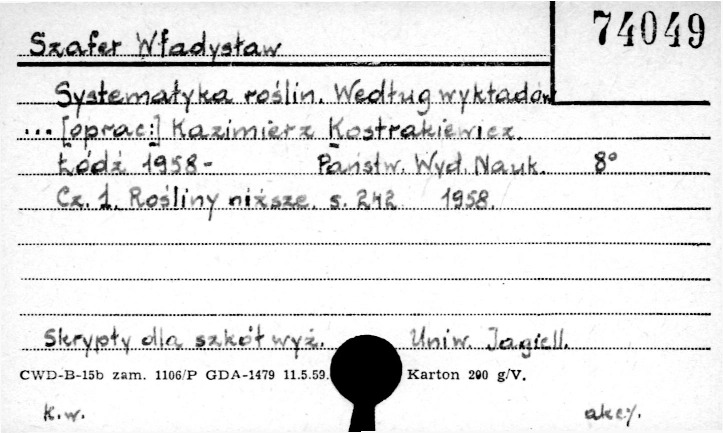 74049
Szafer Władysław
Systematyka roślin. Według wykładów
... [oprac:] Kazimierz Kostrakiewicz.
Łódź 1958- Państw. Wyd. Nauk. 8°
Cz. 1. Rośliny niższe. s. 242 1958.
Skrypty dla szkół wyż. Uniw. Jagiell.
CWD-B-15b zam. 1106/P GDA-1479 11.5.59. Karton 200 g/V.
K.w. akc.